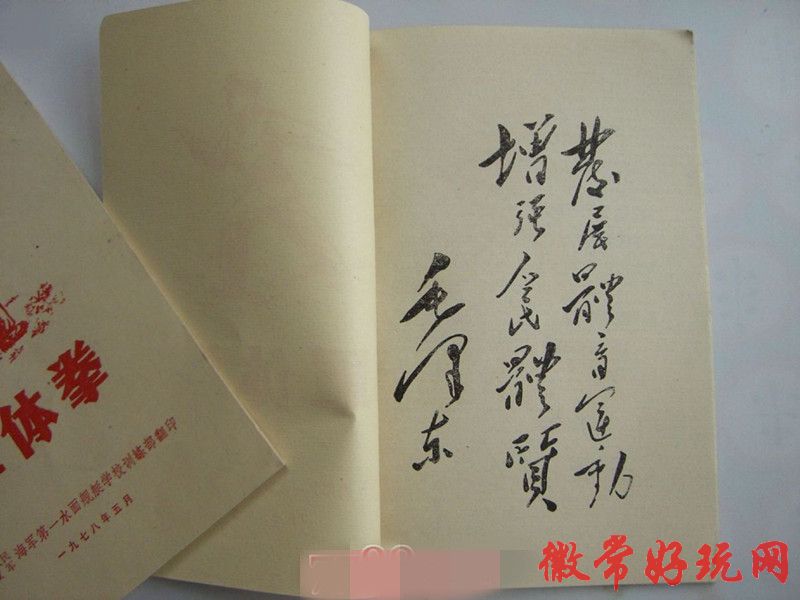 發展體育運動
增强人民體質
毛澤东
体拳
民
军 海军第一水面舰艇学校训练部翻印
一九七八年五月
徽常好玩网